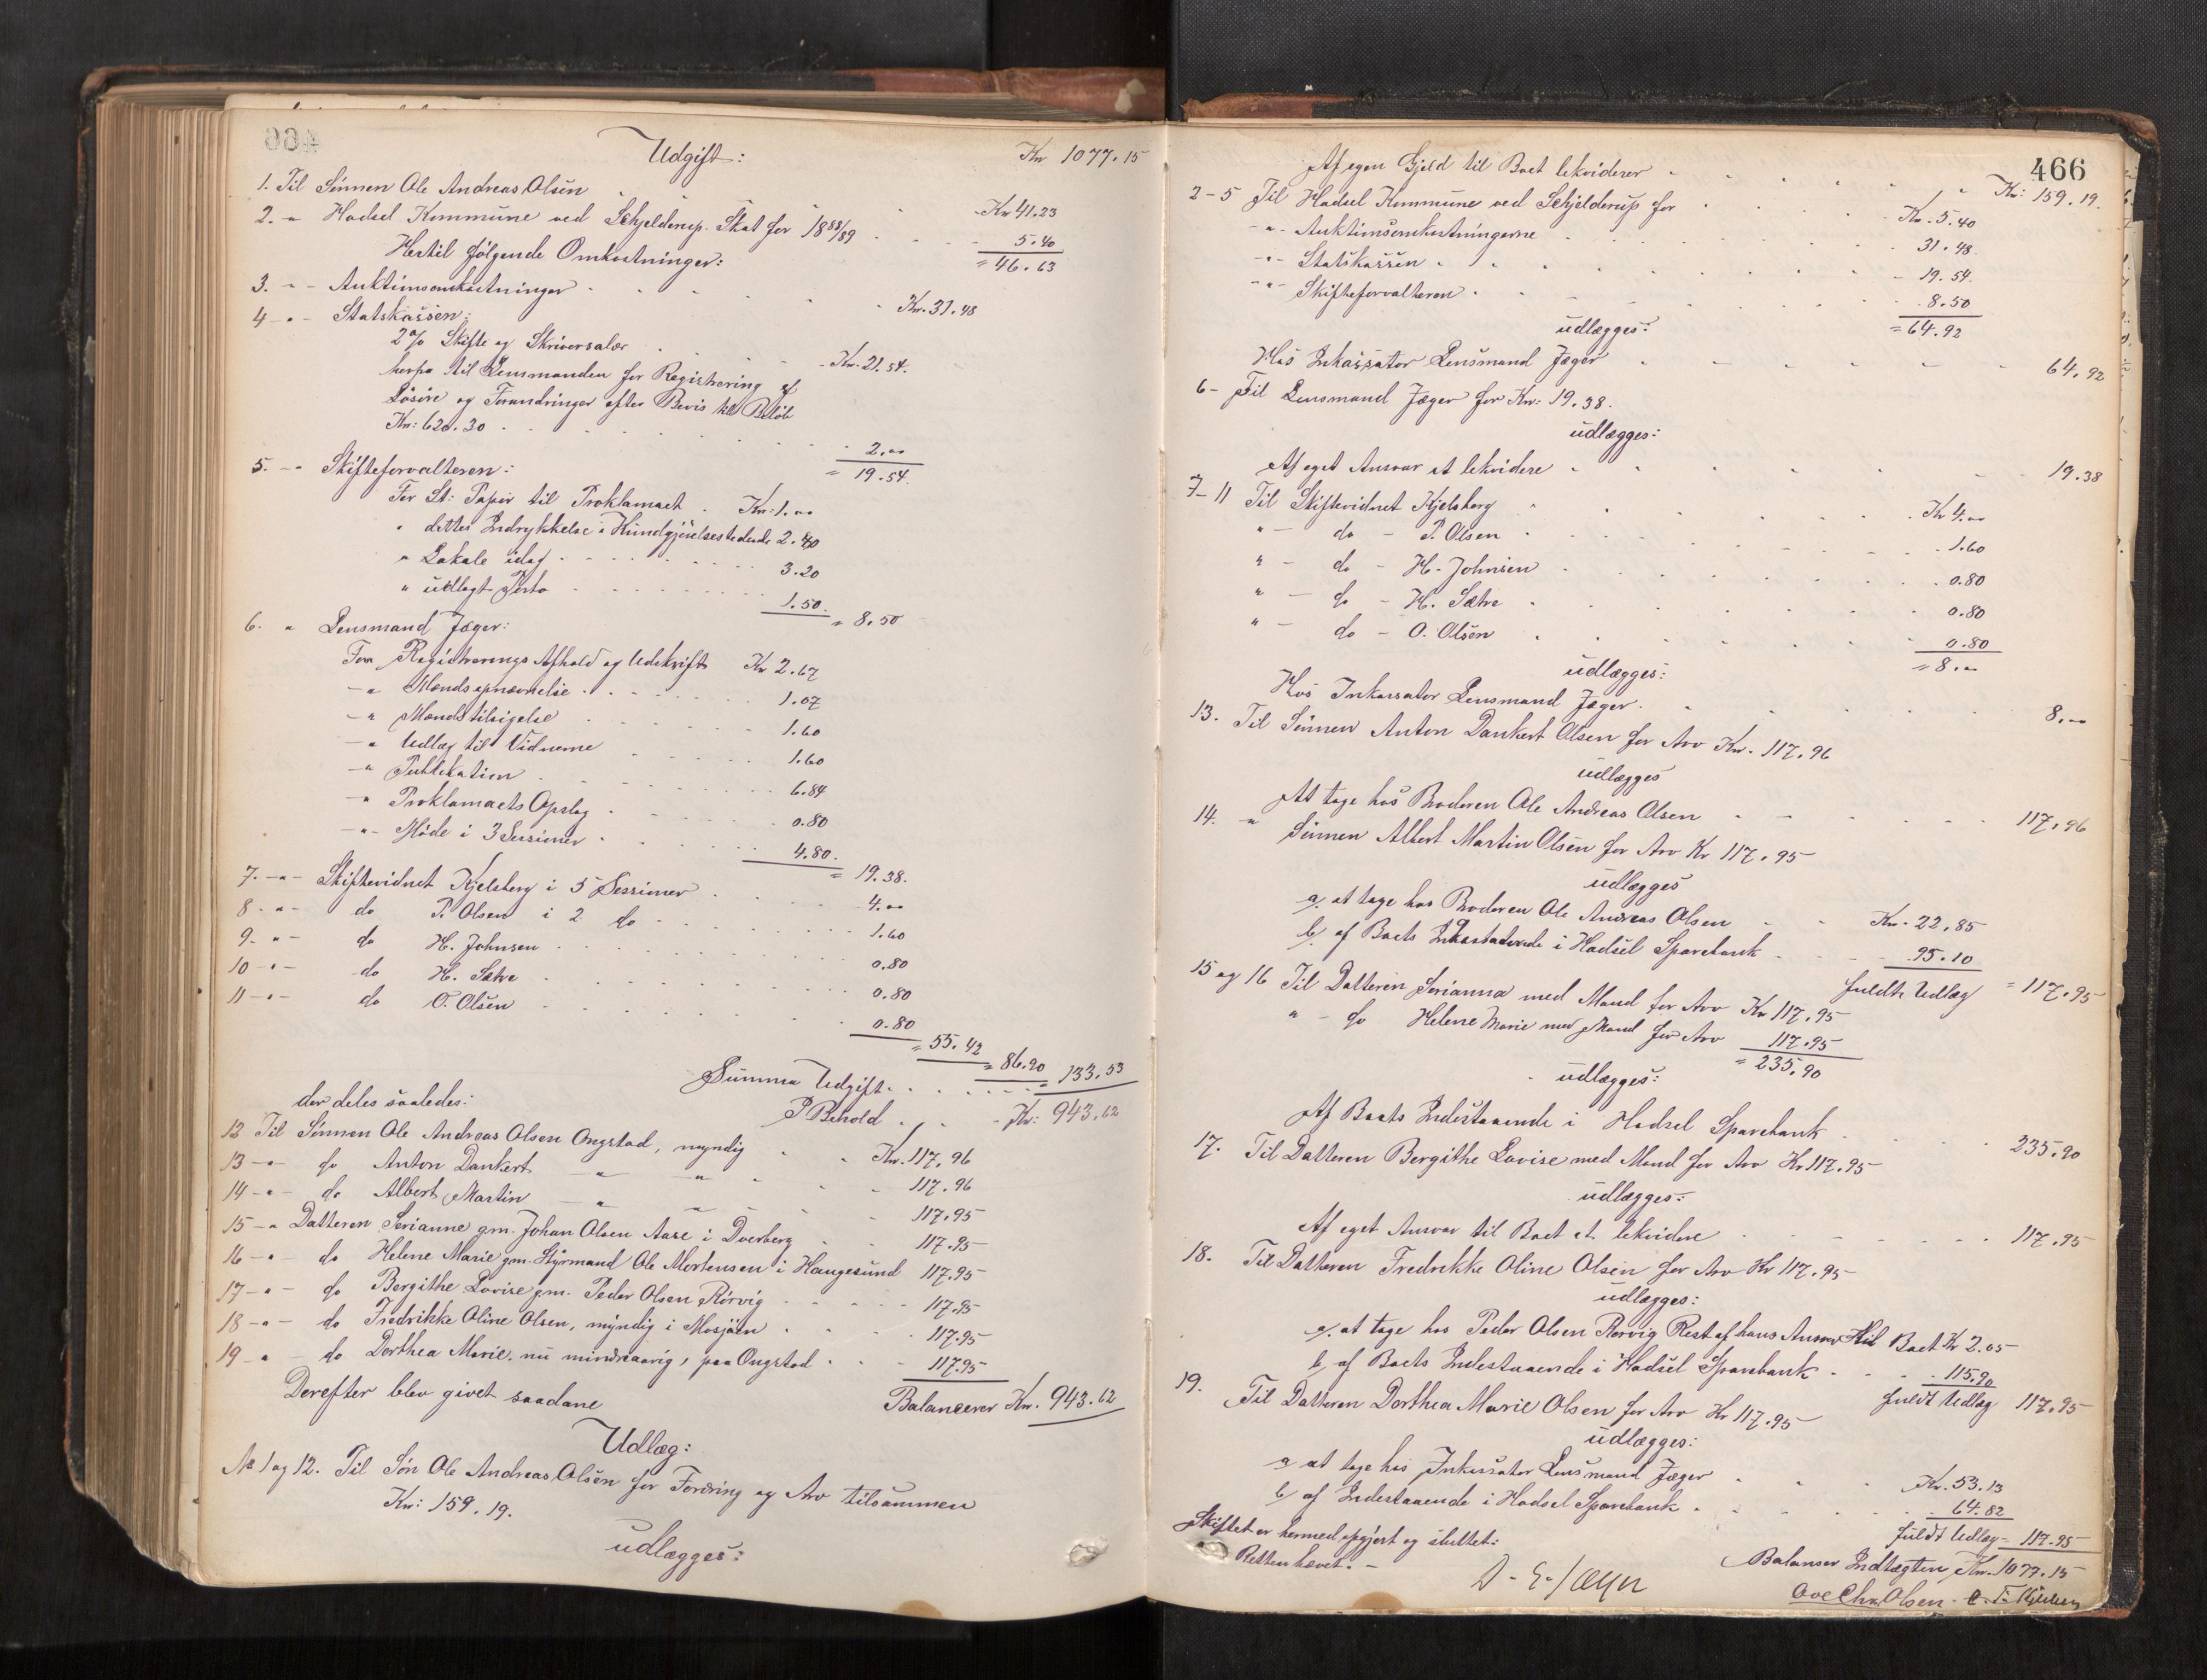 Udgift: Kr 1077.15
1. Til Sönnen Ole Andreas Olsen . . . Kr 41.23
2. " Hadsel Kommune ved Schjelderup. Skat for 1888/89 . . . 5.40
= 46.63
Hertil følgende Omkostninger:
3. " - Auktionsomkostninger . . . Kr. 31.48
4 - " - Statskassen:
2% Skifte og Skriversalær . . . Kr. 21.54.
herfra til Lensmanden for Registrering af
Lösöre og Forandringer efter Bevis til Beløb
Kr: 620.30 . . . 2.00
= 19.54.
5. - " Skifteforvalteren:
For St: Papir til Proklamaet . Kr: 1.00
" dettes Indrykkelse i Kundgjörelsestidende 2.40
" Lokale idag . . . 3.20
" udlagt Porto . . . 1.50.
= 8.50
6. " Lensmand Jæger:
For Registrerings Afhold og Udskrift Kr 2.67
- " Mændsopnævnelse . . . 1.07
- " Mændstilsigelse . . . 1.60
- " Udlæg til Vidnerne . . . 1.60
- " Publikation . . . 6.84
- " Proklamaets Opslag . . . 0.80
- " - Möde i 3 Sessioner . . . 4.80.
= 19.38.
7. - " - Skiftevidnet Kjelsberg i 5 Sessioner . . . 4.00
8 - " - do P. Olsen i 2 do . . . 1.60
9. " - do H. Johnsen . . . 0.80
10 - " - do H. Sætre . . . 0.80
11 - " - do O. Olsen . . . 0.80
= 55.42
= 86.90 = 133.53
Summa Udgift . . .
P Behold . . . Kr: 943.62
der deles saaledes:
12 Til Sönnen Ole Andreas Olsen Ongstad, myndig . . Kr. 117.96
13 - " - do Anton Dankert " " . . . 117.96
14 - " - do Albert Martin " " . . . 117.95
15 - " Datteren Serianne gm. Johan Olsen Aase i Dverberg . . 117.95
16 - " do Helene Marie gm. Styrmand Ole Mortensen i Haugesund 117.95
17 - " - do Bergithe Lovise gm. Peder Olsen Rörvig . . . 117.95
18 - " - do Fredrikke Oline Olsen, myndig i Mosjöen . . . 117.95
19 - " - do Dorthea Marie, nu mindreaarig, paa Ongstad . . . 117.95
Balancerer Kr. 943.62
Derefter blev givet saadane
Udlæg:
No 1 og 12. Til Sön Ole Andreas Olsen for Fordring og Arv tilsammen
Kr: 159.19.
udlægges:
466
Af egen Gjeld til Boet lekviderer . . . Kr: 159.19.
2-5 Til Hadsel Kommune ved Schjelderup for . . . Kr. 5.40
- " - Auktionsomkostningerne . . . 31.48.
- " - Statskassen . . . 19.54.
- " - Skifteforvalteren . . . 8.50
= 64.92
udlægges:
Hos Inkassator Lensmand Jæger . . . 64.92
6 - Til Lensmand Jæger for Kr: 19.38.
udlægges:
Af eget Ansvar at lekvidere . . . 19.38
7-11 Til Skiftevidnet Kjelsberg . . . Kr 4.00
" - do - P. Olsen . . . 1.60
" - do - H. Johnsen . . . 0.80
" - do - H. Sætre . . . 0.80
" - do - O. Olsen . . . 0.80
= 8.00
udlægges:
Hos Inkassator Lensmand Jæger . . . 8.00
13. Til Sönnen Anton Dankert Olsen for Arv Kr. 117.96
udlægges
At tage hos Broderen Ole Andreas Olsen . . . 117.96
14. " Sönnen Albert Martin Olsen for Arv Kr 117.95
udlægges
a. at tage hos Broderen Ole Andreas Olsen . . Kr. 22.85
b. af Boets Indestaaende i Hadsel Sparebank . . . 95.10
fuldt Udlæg = 117.95
15 og 16 Til Datteren Serianna med Mand for Arv Kr 117.95
" - do Helene Marie med Mand for Arv 117.95
= 235.90
udlægges:
Af Boets Indestaaende i Hadsel Sparebank . . . 235.90
17. Til Datteren Bergithe Lovise med Mand for Arv Kr 117.95
udlægges:
Af eget Ansvar til Boet at lekvidere . . . 117.95
18. Til Datteren Fredrikke Oline Olsen for Arv Kr 117.95
udlægges:
a. at tage hos Peder Olsen Rörvig Rest af hans Ansvar til Boet Kr 2.05
b. af Boets Indestaaende i Hadsel Sparebank . . . 115.90
fuldt Udlæg 117.95
19. Til Datteren Dorthea Marie Olsen for Arv Kr 117.95
udlægges:
a at tage hos Inkassator Lensmand Jæger . . . Kr. 53.13
b/ af Indestaaende i Hadsel Sparebank . . . 64.82
fuldt Udlæg - 117.95
Balanser Indtægten, Kr. 1077.15
Skiftet er hermed opgjort og sluttet.
Retten hævet. -
Ove Chr. Olsen